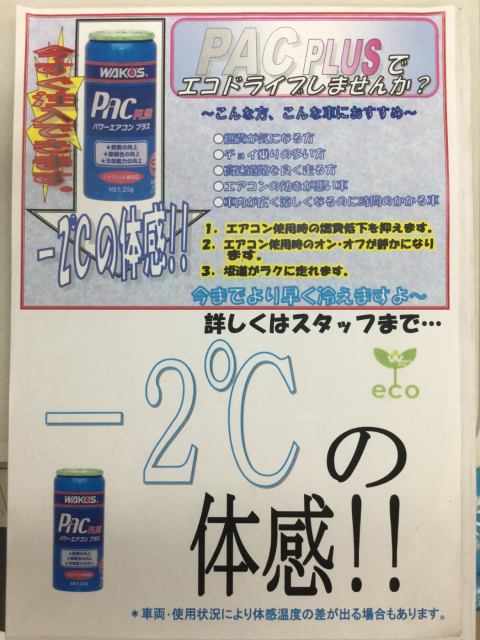 PAC PLUSで
エコドライブしませんか？
～こんな方、こんな車におすすめ～
●燃費が気になる方
●チョイ乗りの多い方
●高速道路を良く走る方
●エアコンの効きが悪い車
●車内が広く涼しくなるのに時間のかかる車
1．エアコン使用時の燃費低下を抑えます。
2．エアコン使用時のオン・オフが静かになり
ます。
3．坂道がラクに走れます。
今までより早く冷えますよ～
WAKO'S
PAC PLUS
パワーエアコン プラス
★燃費の向上
★静粛性の向上
★冷却能力の向上
NET 25g
－2℃の体感!!
詳しくはスタッフまで…
W
eco
－2℃の
体感!!
WAKO'S
PAC PLUS
パワーエアコン プラス
★燃費の向上
★静粛性の向上
★冷却能力の向上
＊車両・使用状況により体感温度の差が出る場合もあります。